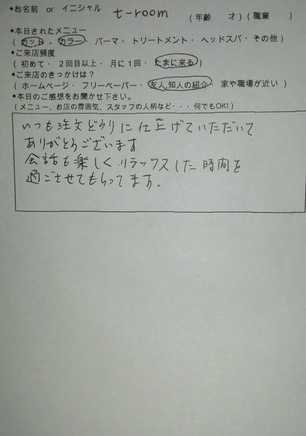 *お名前 or イニシャル t-room (年齢 才)(職業 )
*本日されたメニュー
(カット・カラー・パーマ・トリートメント・ヘッドスパ・その他)
*ご来店頻度
(初めて・2回目以上・月に1回・たまに来る)
*ご来店のきっかけは?
(ホームページ・フリーペーパー・友人,知人の紹介・家や職場が近い)
*本日のご感想をお聞かせ下さい。
(メニュー、お店の雰囲気、スタッフの人柄など・・・何でもOK!)
いつも注文どうりに仕上げていただいて
ありがとうございます
会話も楽しくリラックスした時間を
過ごさせてもらってます.